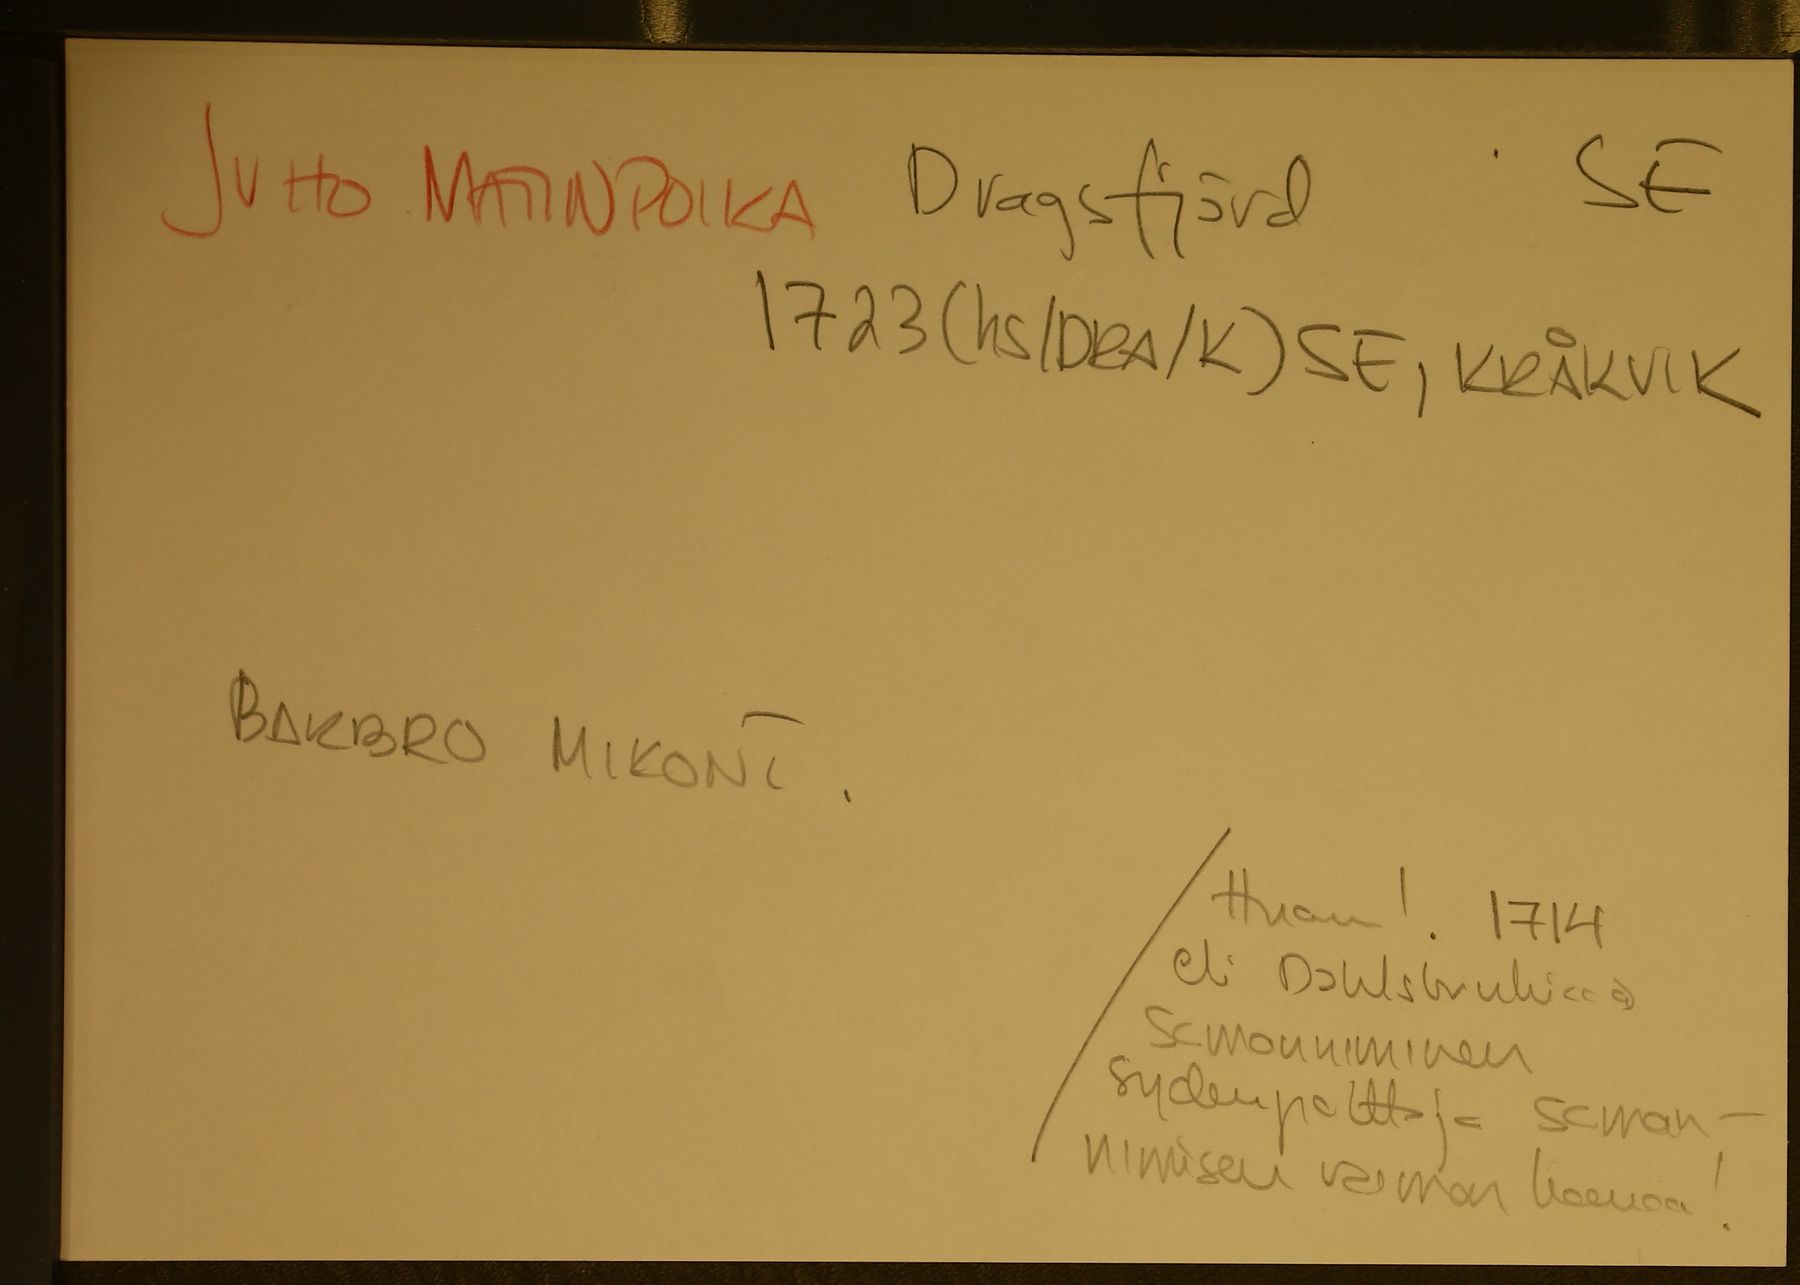 JUHO MATINPOIKA Dragsfjärd SE
1723 (hs/DRA/K) SE, KRÅKVIK
BARBRO MIKONT.
Huom! 1714
oli Dahlsbrukissa
samanniminen
sydenpolttaja saman-
nimisen vaimon kanssa!